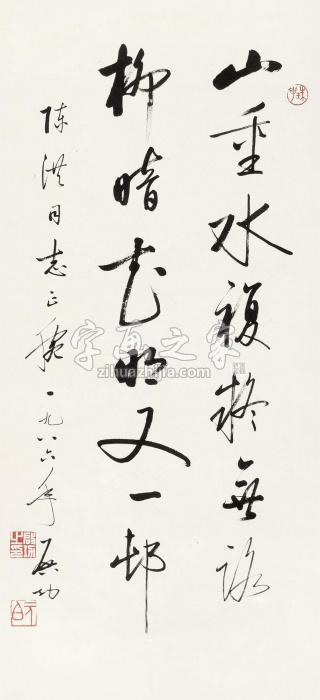 山重水複疑無路
柳暗花明又一邨
陈洪同志正腕 一九八六年 启功
字画之家
zihuazhijia.com